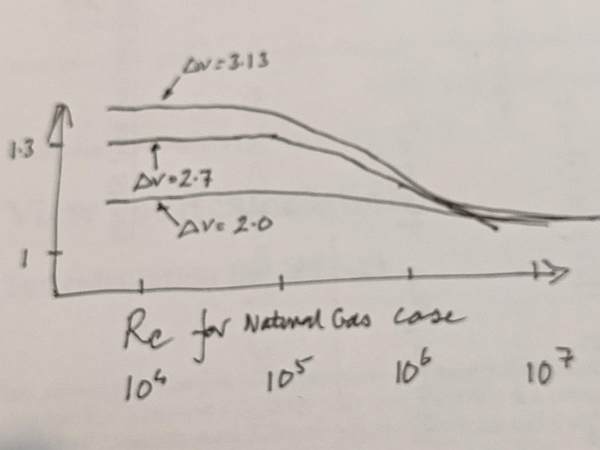 Δv = 3.13
1.3
Δv = 2.7
Δv = 2.0
1
Re for Natural Gas case
10⁴ 10⁵ 10⁶ 10⁷